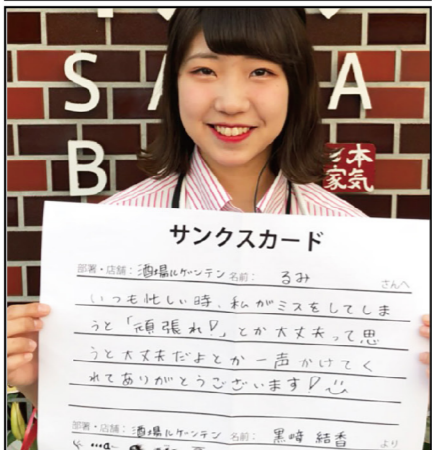 S A A
B
本気
家
サンクスカード
部署・店舗：酒場ルゲンテン 名前： るみ さんへ
いつも忙しい時、私がミスをしてしま
うと「頑張れ!」とか大丈夫って思
うと大丈夫だよとか一声かけてく
れてありがとうございます!
部署・店舗：酒場ルゲンテン 名前：黒崎 結香 より